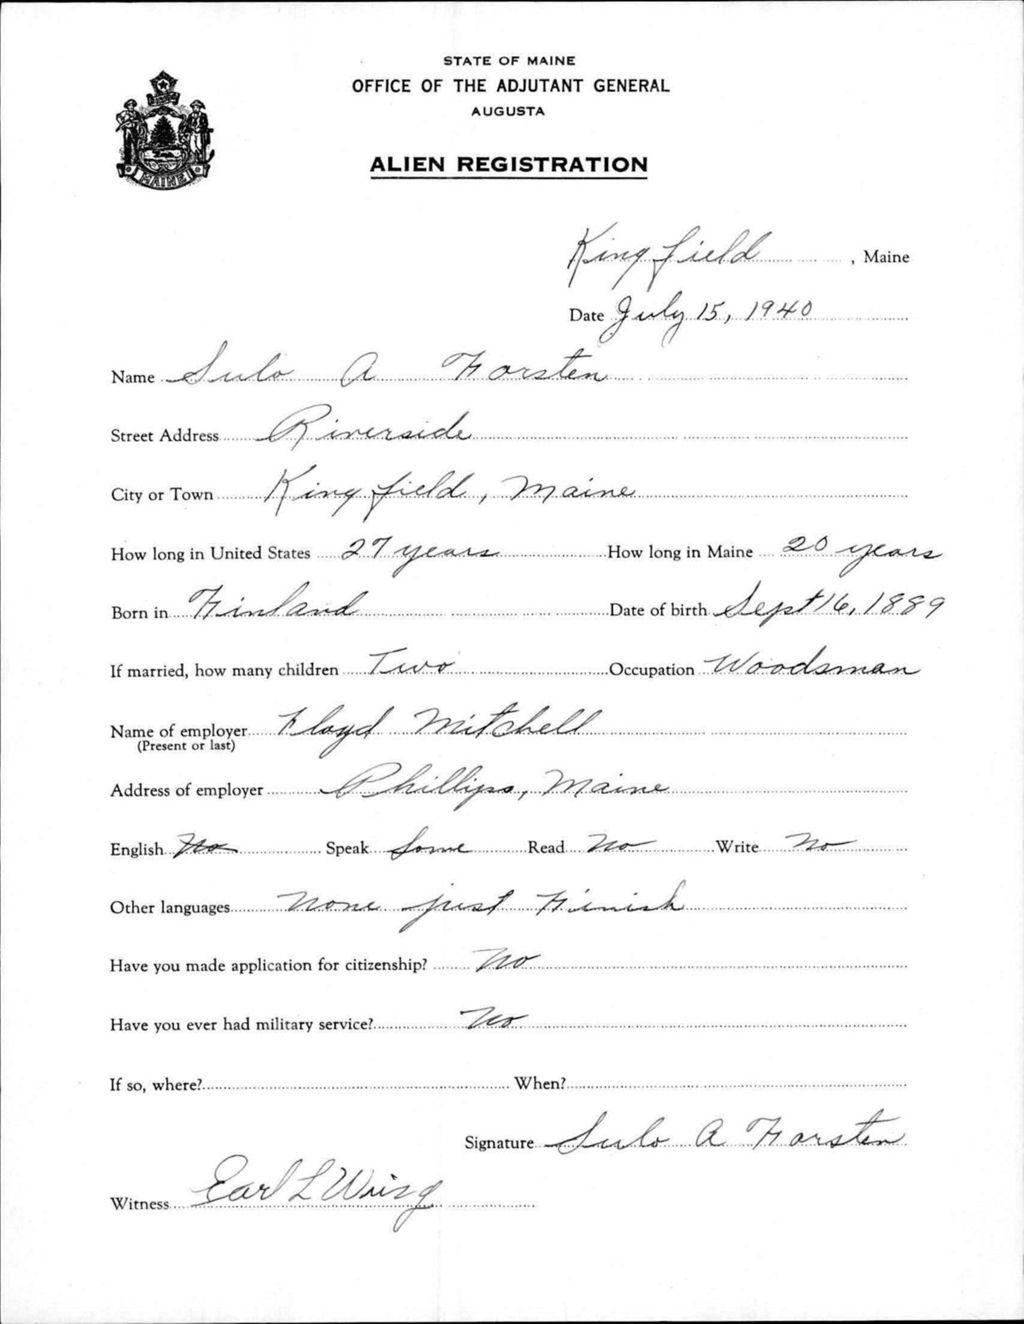 STATE OF MAINE
OFFICE OF THE ADJUTANT GENERAL
AUGUSTA
ALIEN REGISTRATION
MAINE
Kingfield, Maine
Date July 15, 1940
Name Sulo A Forsten
Street Address Riverside
City or Town Kingfield, Maine
How long in United States 27 years How long in Maine 20 years
Born in Finland Date of birth Sept 16, 1889
If married, how many children Two Occupation Woodsman
Name of employer Floyd Mitchell
(Present or last)
Address of employer Phillips, Maine
English No Speak Some Read No Write No
Other languages None just Finish
Have you made application for citizenship? No
Have you ever had military service? No
If so, where? When?
Signature Sulo A Forsten
Witness Earl L Wing